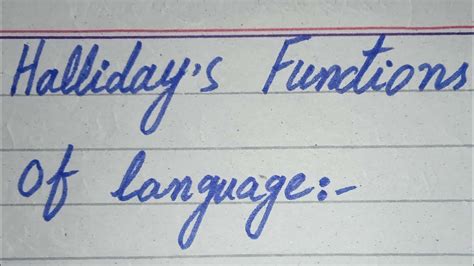 Halliday's Functions
Of language:-